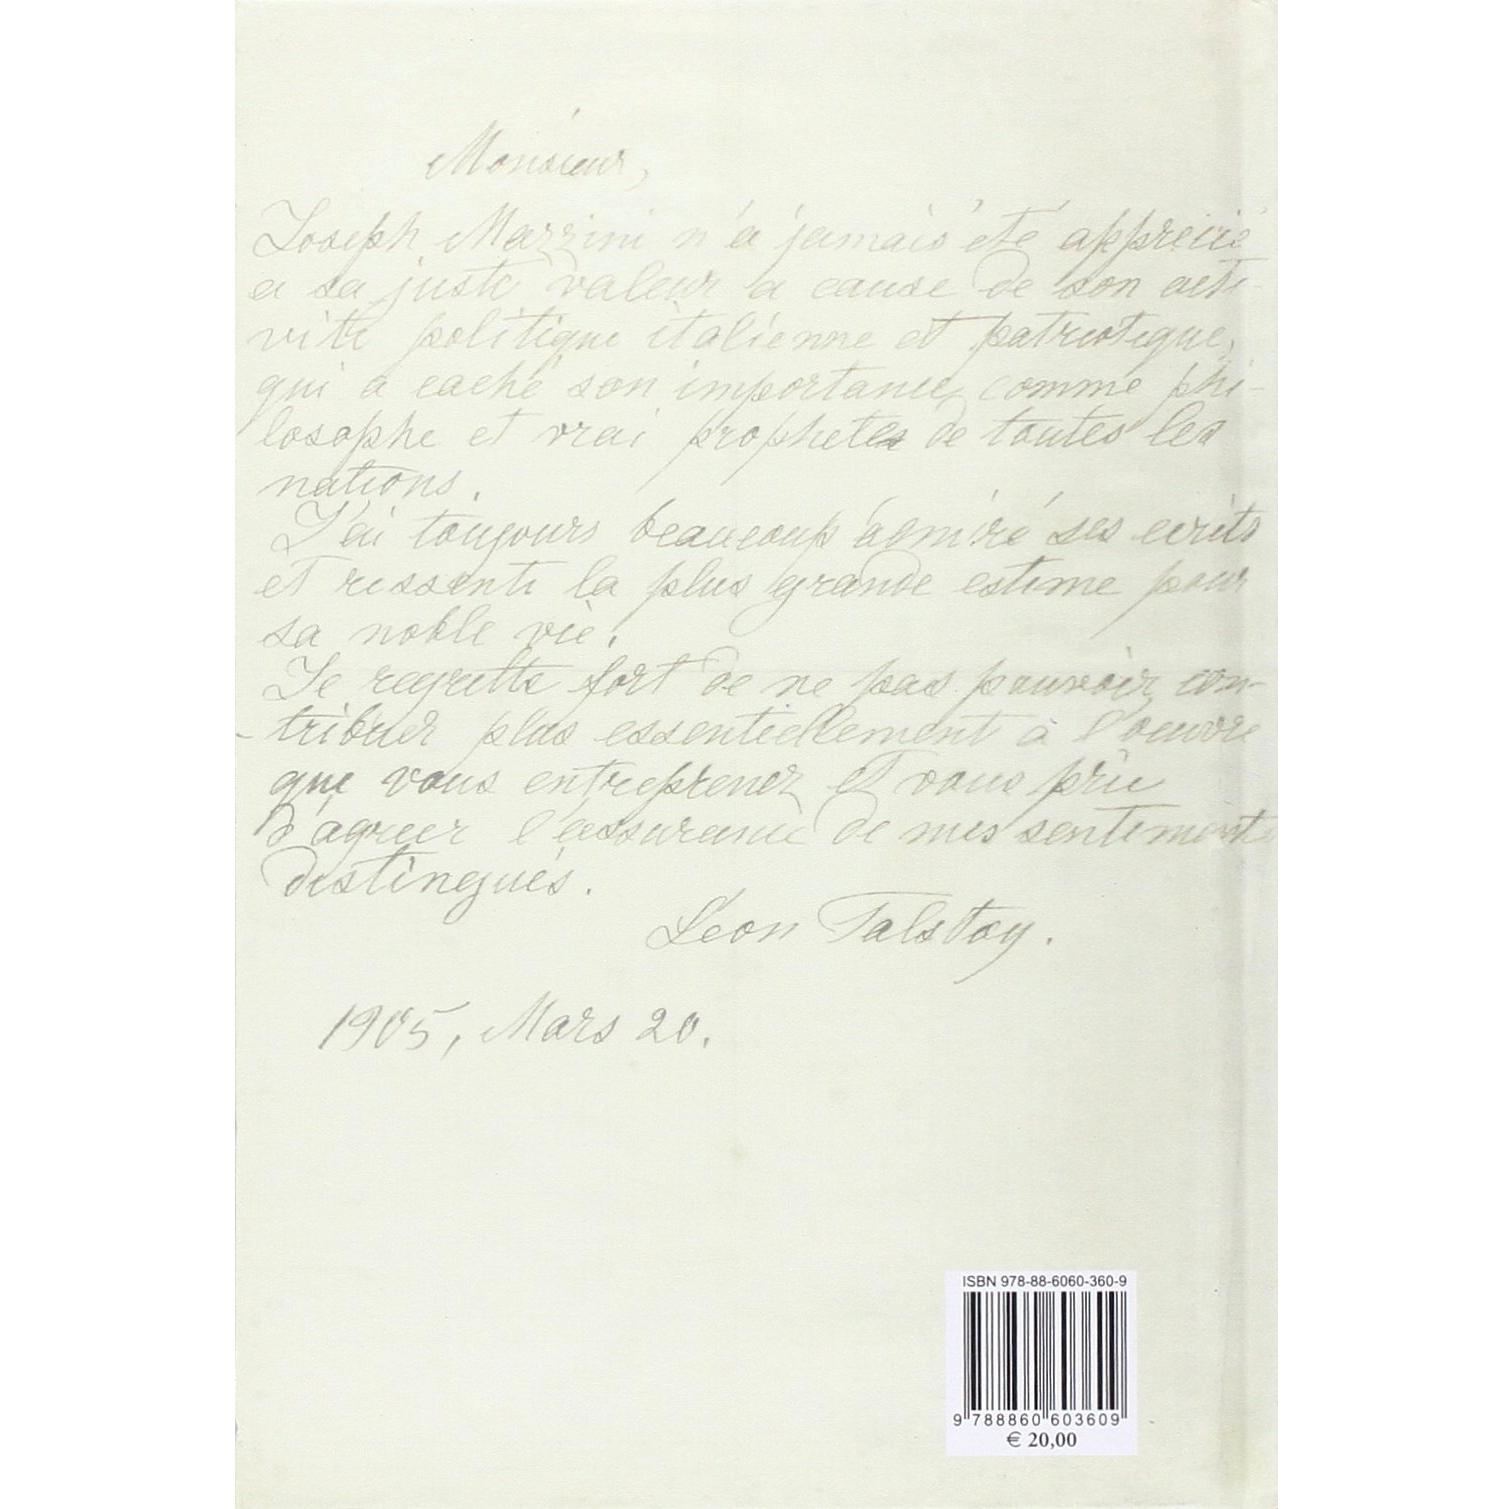 Monsieur,
Joseph Mazzini n'a jamais été apprécié
a sa juste valeur a cause de son acti-
vité politique italienne et patriotique,
qui a caché son importance comme phi-
losophe et vrai prophetes de toutes les
nations.
J'ai toujours beaucoup admiré ses ecrits
et ressenti la plus grande estime pour
sa noble vie.
Je regrette fort de ne pas pouvoir con-
-tribuer plus essentiellement à l'oeuvre
que vous entreprenez et vous prie
d'agreer l'assurance de mes sentiments
distingués.
Léon Tolstoy.
1905, Mars 20.
ISBN 978-88-6060-360-9
9 788860 603609
€ 20,00